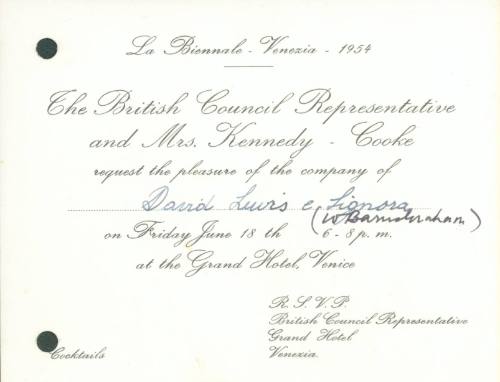 La Biennale - Venezia - 1954
The British Council Representative
and Mrs. Kennedy - Cooke
request the pleasure of the company of
David Lewis e Signora
(W Barns Graham)
on Friday June 18 th 6 - 8 p. m.
at the Grand Hotel, Venice
R. S. V. P.
British Council Representative
Grand Hotel
Venezia
Cocktails